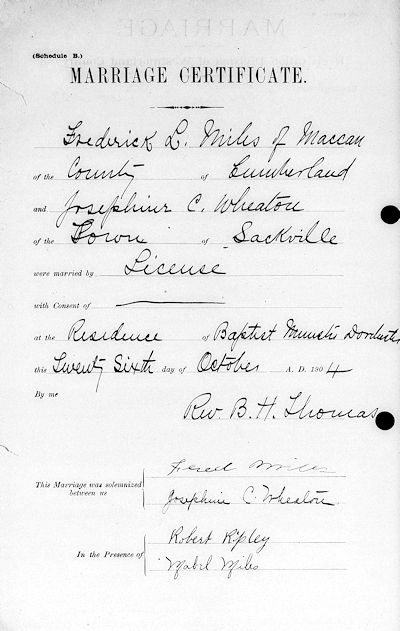 (Schedule B.)
MARRIAGE CERTIFICATE.
Frederick L. Miles of Maccan
of the County of Cumberland
and Josephine C. Wheaton
of the Town of Sackville
were married by License
with Consent of
at the Residence of Baptist Minister Dorchester
this Twenty Sixth day of October A. D. 1904
By me
Rev. B. H. Thomas
This Marriage was solemnized between us
Fred Miles
Josephine C. Wheaton
In the Presence of
Robert Ripley
Mabel Miles